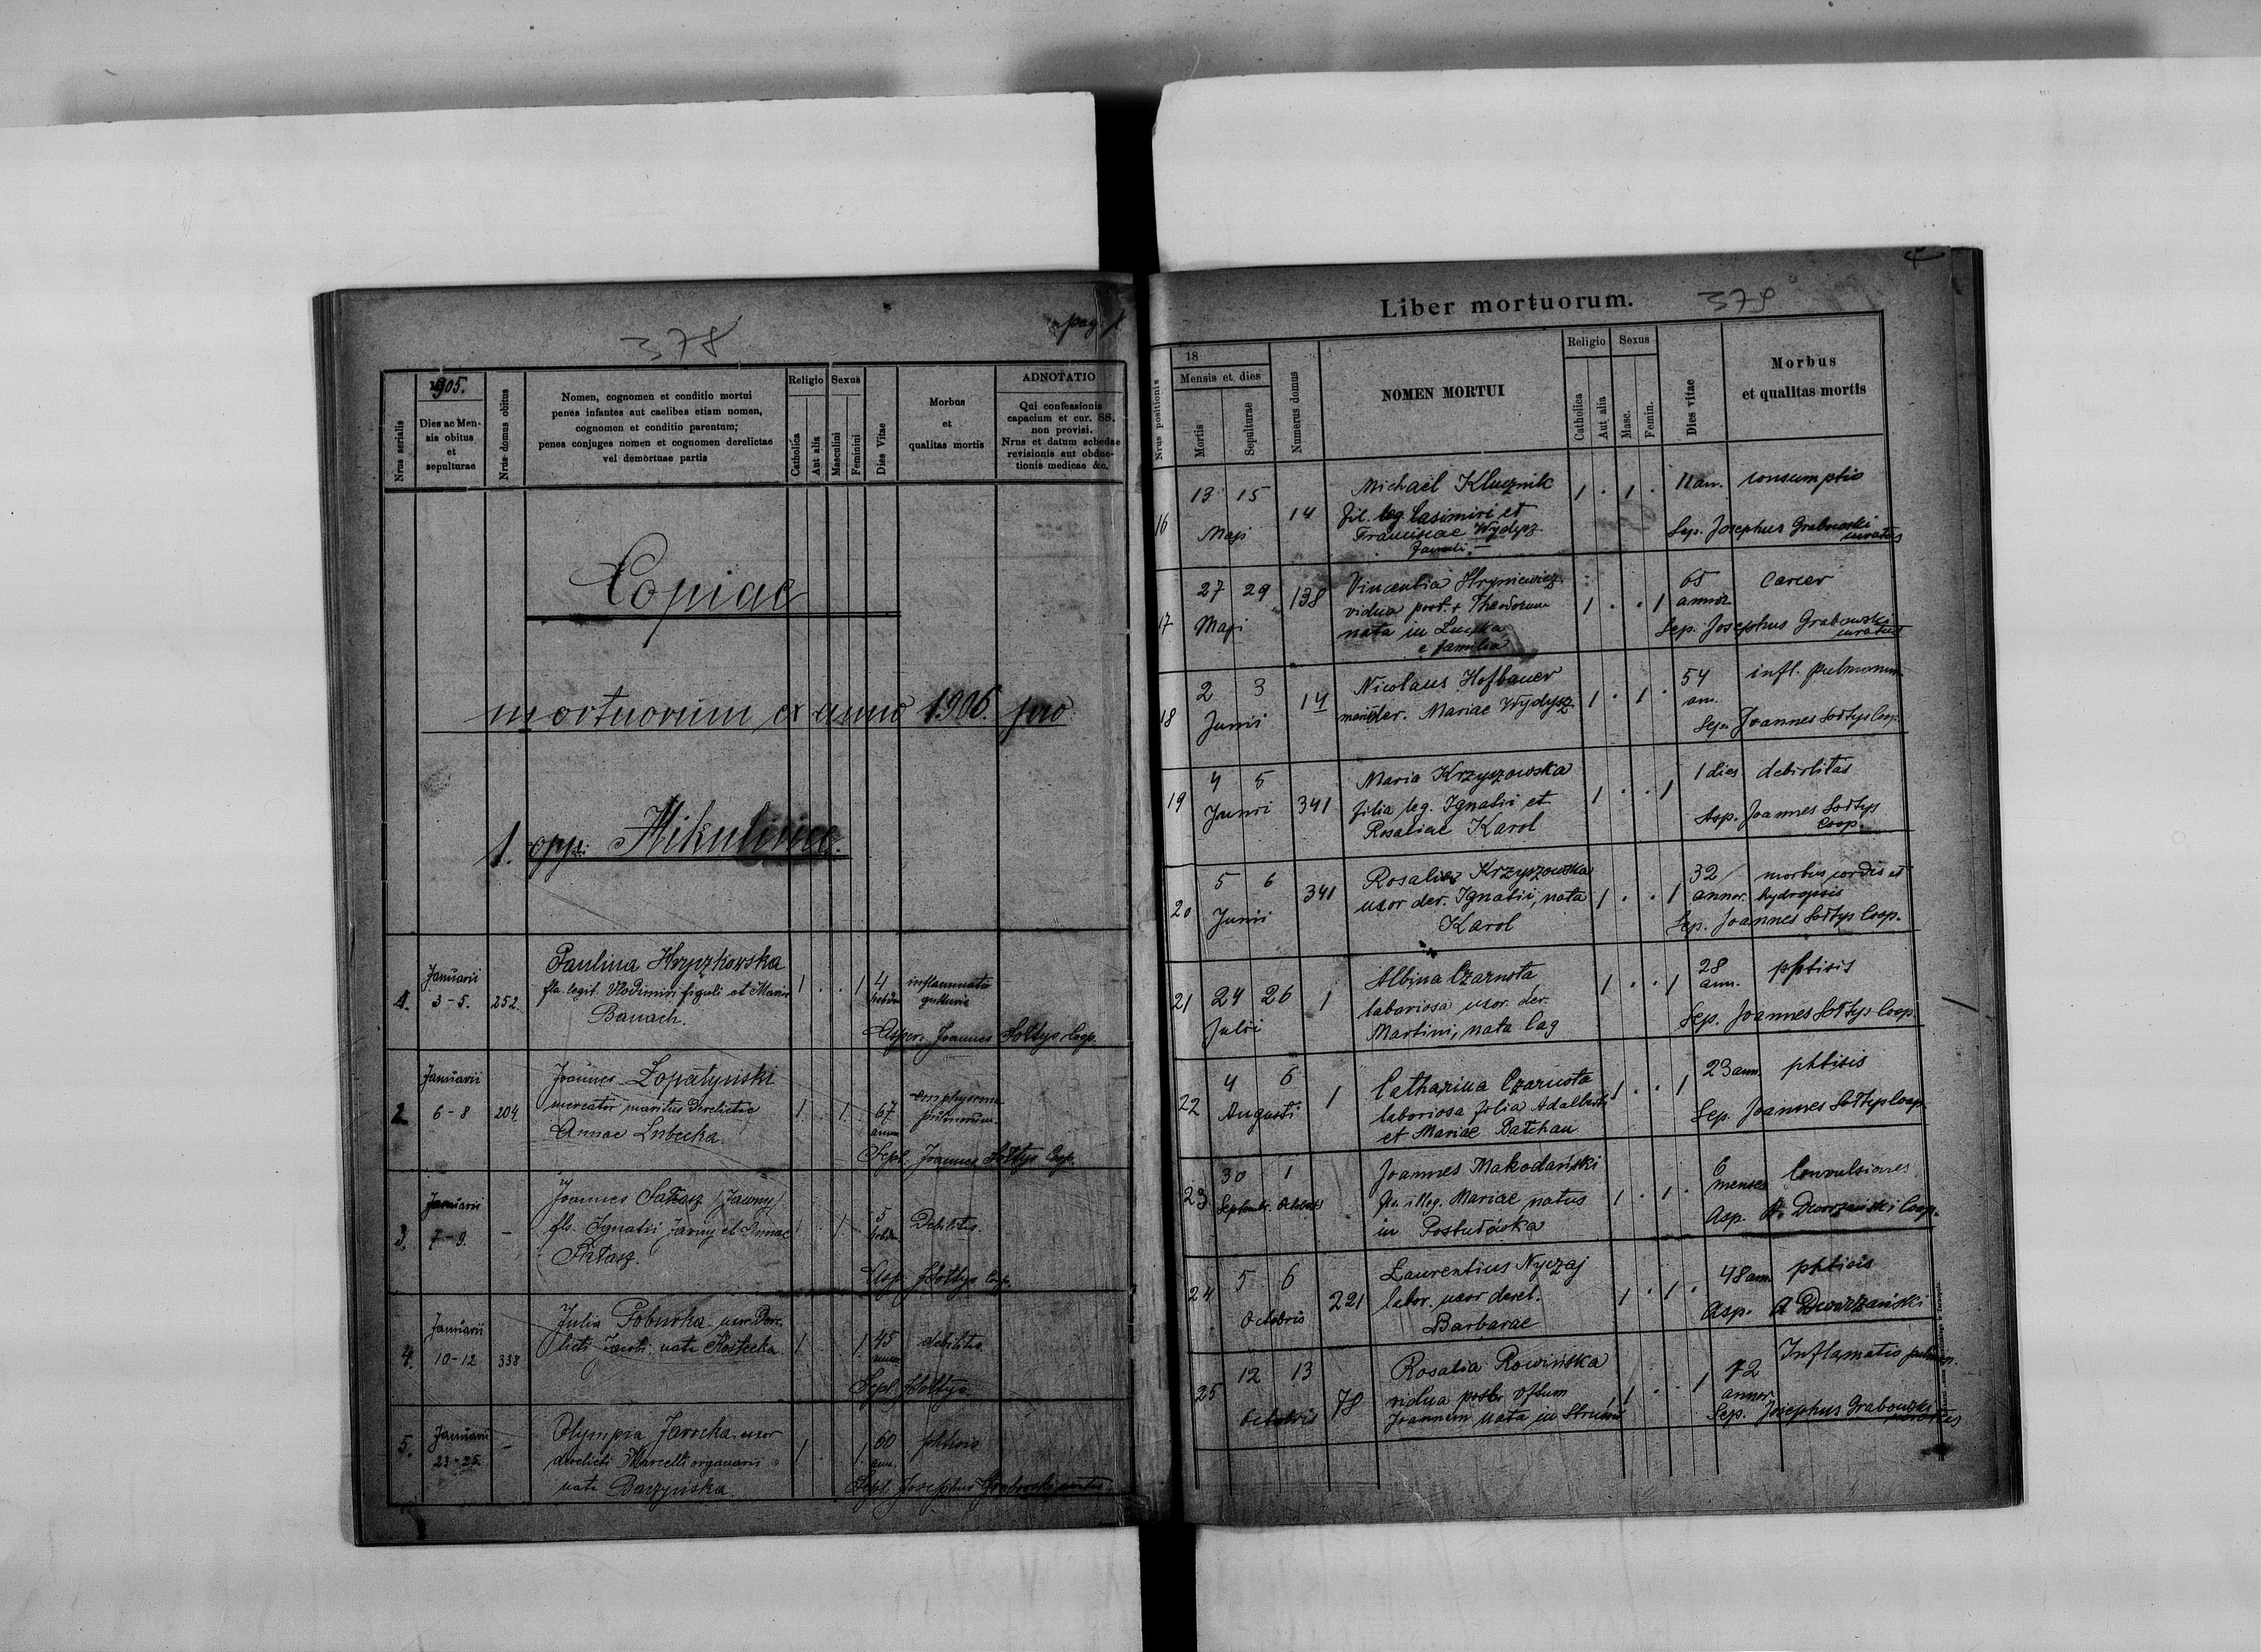 378
pag. 1
1905.
Nrus serialis
Dies ac Mensis obitus et sepulturae
Nrus domus obitus
Nomen, cognomen et conditio mortui
penes infantes aut caelibes etiam nomen,
cognomen et conditio parentum;
penes conjuges nomen et cognomen derelictae
vel demortuae partis
Religio
Catholica
Aut alia
Sexus
Masculini
Feminini
Dies Vitae
Morbus
et
qualitas mortis
ADNOTATIO
Qui confessionis
capacium et cur. SS.
non provisi.
Nrus et datum schedae
revisionis aut obduc-
tionis medicae &c.
Copiae
mortuorum ex anno 1905. pro
1. opp. Mikulince.
1. Januarii 3-5. 252.
Paulina Krzyzkowska
fla. legit. Vlodimiri figuli et Mariae
Banach.
1 . . 1 4 hebdm. inflammatio gutturis
Asper. Joannes Sołtys Coop.
2. Januarii 6-8 204.
Joannes Łopatyński
mercator maritus derelictae
Annae Lubecka
1 . 1 . 67 annor. emphysema pulmonum.
Sepel. Joannes Sołtys Coop.
3. Januarii 7-9. -
Joannes Sałasz /Jawny/
fls. Ignatii Jawny et Annae
Sałasz.
1 . 1 . 5 hebdm. Debilitas.
Asp. J Sołtys Coop.
4. Januarii 10-12 338
Julia Poburka uxor Dere-
licti Jacobi nata Kostecka
1 . . 1 45 annor. debilitas
Sepel. J Sołtys
5. Januarii 23-25. -
Olympia Jarocka uxor
derelicti Marcelli organarii
nata Baczyńska.
1 . . 1 60 ann. phtisis
Sepel. Josephus Grabowski curatus
Liber mortuorum.
379
Nrus positionis
18
Mensis et dies
Mortis
Sepulturae
Numerus domus
NOMEN MORTUI
Religio
Catholica
Aut alia
Sexus
Masc.
Femin.
Dies vitae
Morbus
et qualitas mortis
16 13 15 Maji 14
Michael Klucznik
fil. leg. Casimiri et
Franciscae Wydysz
famuli -
1 . 1 . 11 an. consumptio
Sep. Josephus Grabowski
curatus
17 27 29 Maji 138
Vincentia Hryniewicz
vidua post. + Theodorum
nata in Lucka
e familia
1 . . 1 65 annor. Cancer
Sep. Josephus Grabowski
curatus
18 2 3 Junii 14
Nicolaus Hofbauer
der. Mariae Wydysz
1 . 1 . 54 an. infl. pulmonum
Sep. Joannes Sołtys Coop.
19 4 5 Junii 341
Maria Krzyszowska
filia leg. Ignatii et
Rosaliae Karol
1 . . 1 1 dies debilitas
Asp. Joannes Sołtys
Coop.
20 5 6 Junii 341
Rosalia Krzyszowska
uxor der. Ignatii, nata
Karol
1 . . 1 32 annor. morbus cordis et
hydropsis
Sep. Joannes Sołtys Coop.
21 24 26 Julii 1
Albina Czarnota
laboriosa uxor. der.
Martini, nata Cag
1 . . 1 28 ann. phtisis
Sep. Joannes Sołtys Coop.
22 4 6 Augusti 1
Catharina Czarnota
laboriosa filia Adalberti
et Mariae Bałchan
1 . . 1 23 ann. phtisis
Sep. Joannes Sołtys Coop.
23 30 1 Septembr. Octobris
Joannes Makodański
fls. illeg. Mariae natus
in Postułówka
1 . 1 . 6 menses Convulsiones
Asp. A. Dworzański Coop.
24 5 6 Octobris 221
Laurentius Nyczaj
labor. uxor derel.
Barbarae
1 . 1 . 48 ann. phtisis
Asp. A Dworzański
25 12 13 Octobris 78
Rosalia Rowińska
vidua post
Joannem nata in
1 . . 1 72 annor. Inflamatio pulmon.
Sep. Josephus Grabowski
curatus